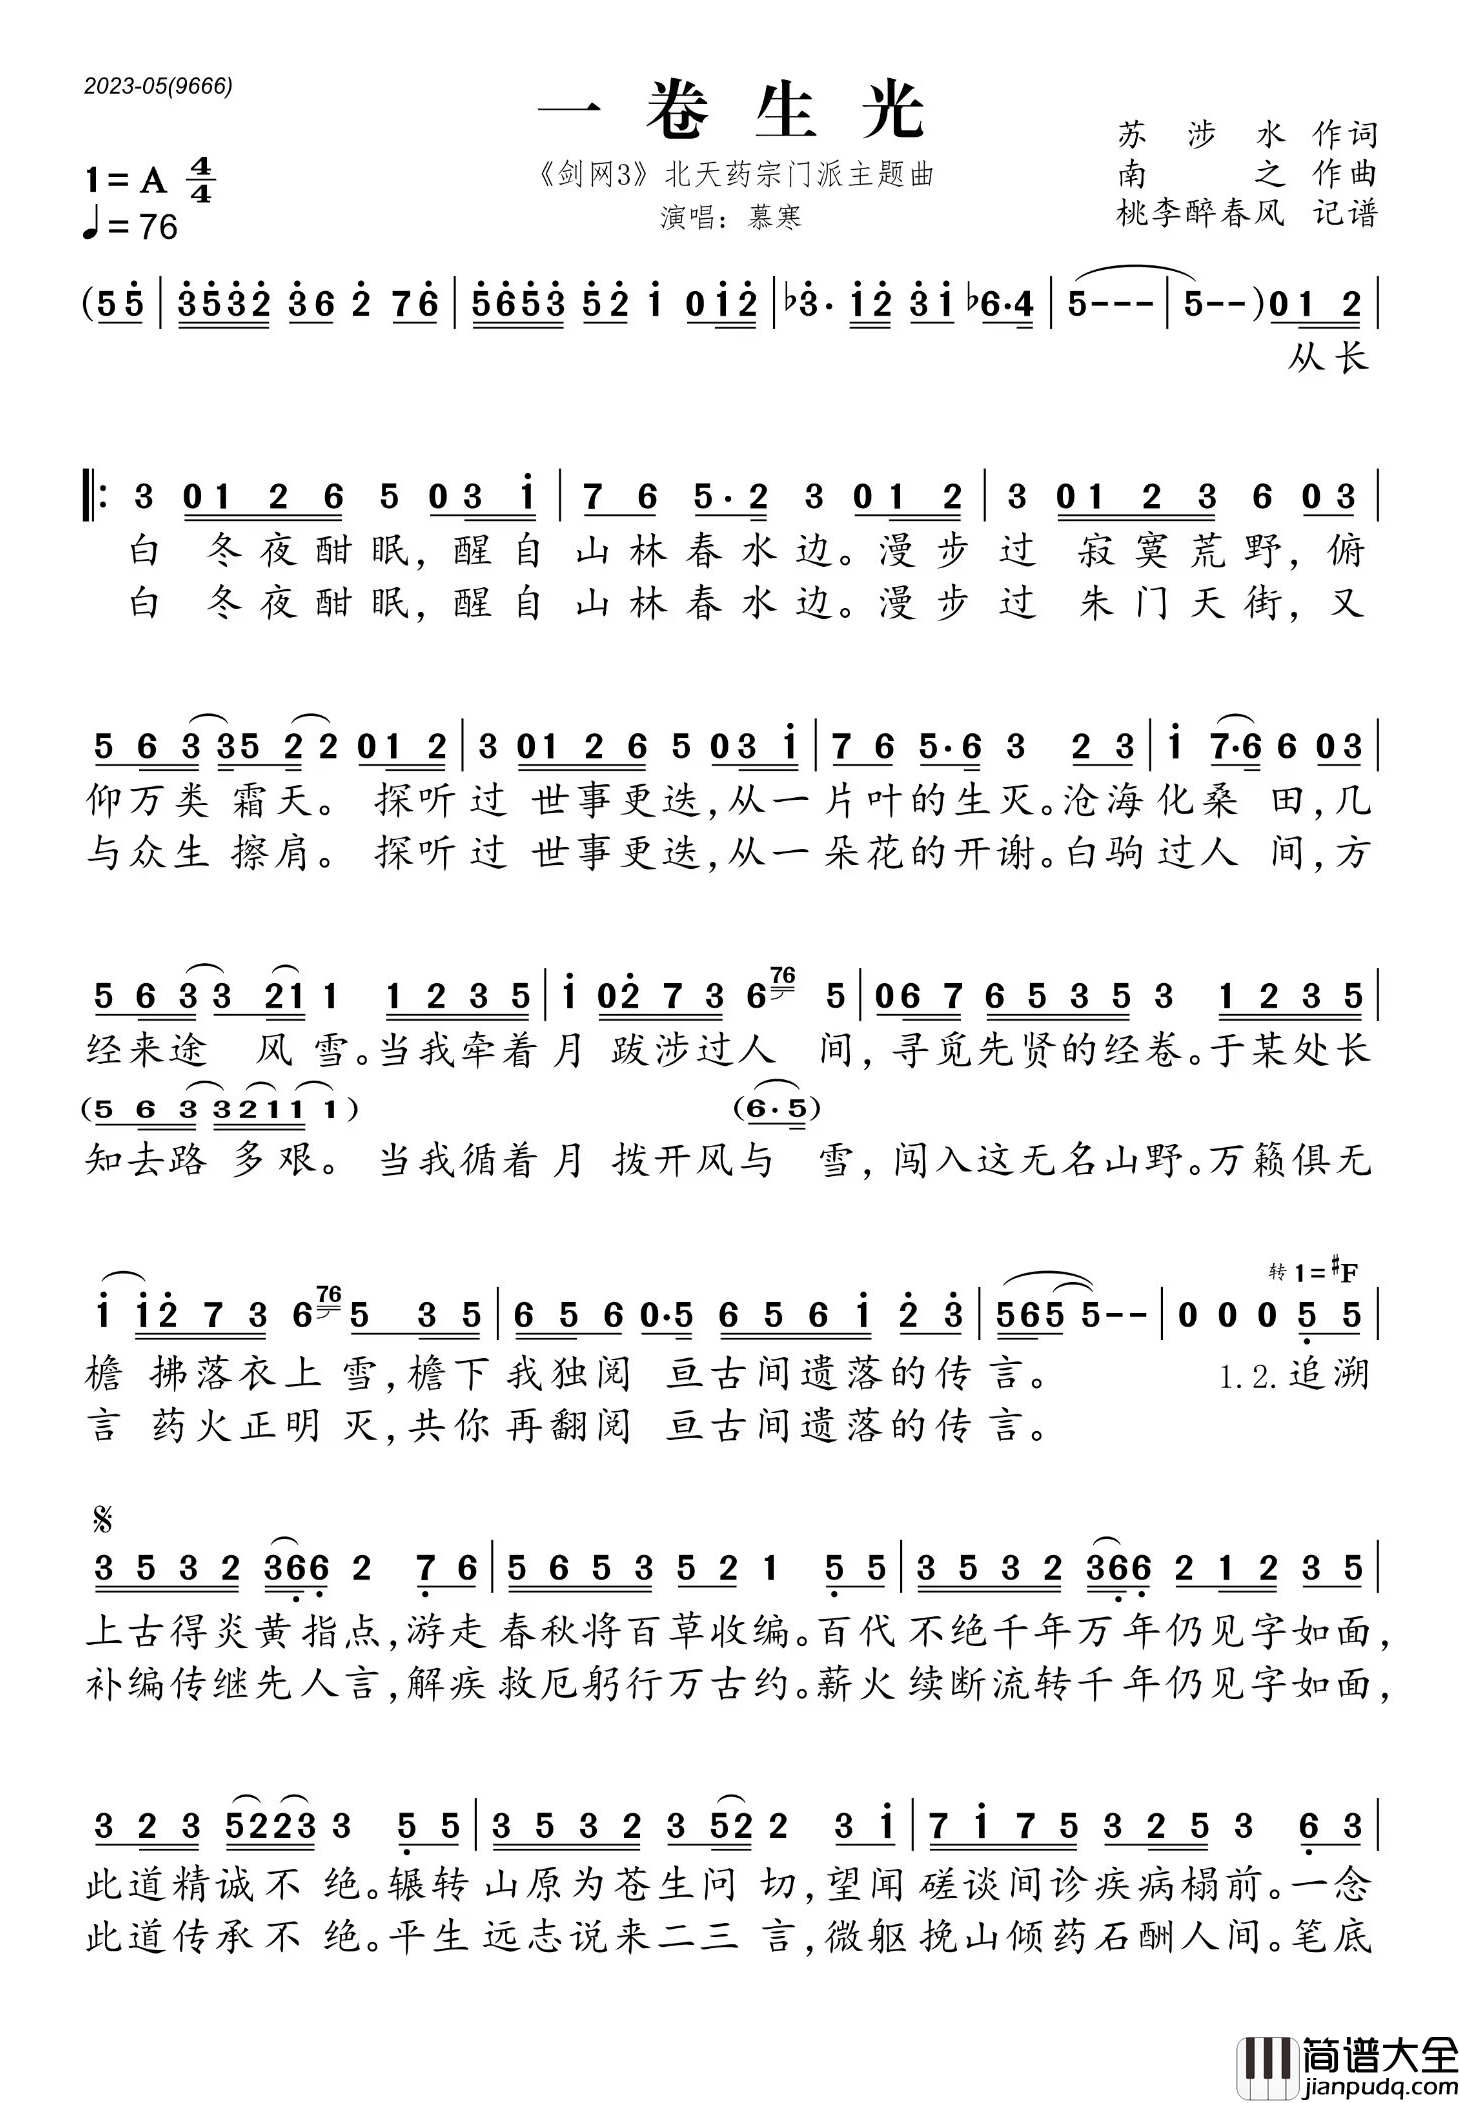 2023-05(9666)
一卷生光
《剑网3》北天药宗门派主题曲
演唱：慕寒
苏涉水 作词
南之 作曲
桃李醉春风 记谱
1=A 4/4
♩=76
(5 5 | 3 5 3 2 3 6 2 7 6 | 5 6 5 3 5 2 1 0 1 2 | ♭3· 1 2 3 1 ♭6·4 | 5--- | 5--) 0 1 2 |
从长
‖: 3 0 1 2 6 5 0 3 1 | 7 6 5·2 3 0 1 2 | 3 0 1 2 3 6 0 3 |
白 冬夜酣眠，醒自山林春水边。漫步过 寂寞荒野，俯
白 冬夜酣眠，醒自山林春水边。漫步过 朱门天街，又
5 6 3 3 5 2 2 0 1 2 | 3 0 1 2 6 5 0 3 1 | 7 6 5·6 3 2 3 | 1 7·6 6 0 3 |
仰万类霜天。 探听过 世事更迭，从一片叶的生灭。沧海化桑田，几
与众生擦肩。 探听过 世事更迭，从一朵花的开谢。白驹过人间，方
5 6 3 3 2 1 1 1 2 3 5 | 1 0 2 7 3 6 76 5 | 0 6 7 6 5 3 5 3 1 2 3 5 |
经来途 风雪。当我牵着月 跋涉过人 间，寻觅先贤的经卷。于某处长
(5 6 3 3 2 1 1 1) (6·5)
知去路多艰。 当我循着月 拨开风与 雪，闯入这无名山野。万籁俱无
转1=♯F
1 1 2 7 3 6 76 5 3 5 | 6 5 6 0·5 6 5 6 1 2 3 | 5 6 5 5-- | 0 0 0 5 5 |
檐 拂落衣上雪，檐下我独阅 亘古间遗落的传言。 1.2.追溯
言 药火正明灭，共你再翻阅 亘古间遗落的传言。
𝄋
3 5 3 2 3 6 6 2 7 6 | 5 6 5 3 5 2 1 5 5 | 3 5 3 2 3 6 6 2 1 2 3 5 |
上古得炎黄指点，游走春秋将百草收编。百代不绝千年万年仍见字如面，
补编传继先人言，解疾救厄躬行万古约。薪火续断流转千年仍见字如面，
3 2 3 5 2 2 3 3 5 5 | 3 5 3 2 3 5 2 2 3 1 | 7 1 7 5 3 2 5 3 6 3 |
此道精诚不绝。辗转山原为苍生问切，望闻磋谈间诊疾病榻前。一念
此道传承不绝。平生远志说来二三言，微躯挽山倾药石酬人间。笔底
简谱大全
jianpudq.com